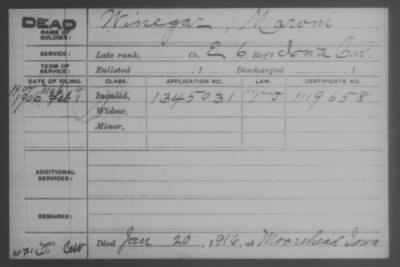 DEAD Winegar, Maroni
NAME OF SOLDIER:
SERVICE: Late rank, Co. E 6 Reg't Iowa Cav.
TERM OF SERVICE: Enlisted , 1 Discharged , 1
DATE OF FILING. CLASS. APPLICATION NO. LAW. CERTIFICATE NO.
1906 Feb 1 Invalid, 1345031 1119658
Widow,
Minor,
ADDITIONAL SERVICES:
REMARKS:
Died Jan 20, 1916, at Moorehead Iowa